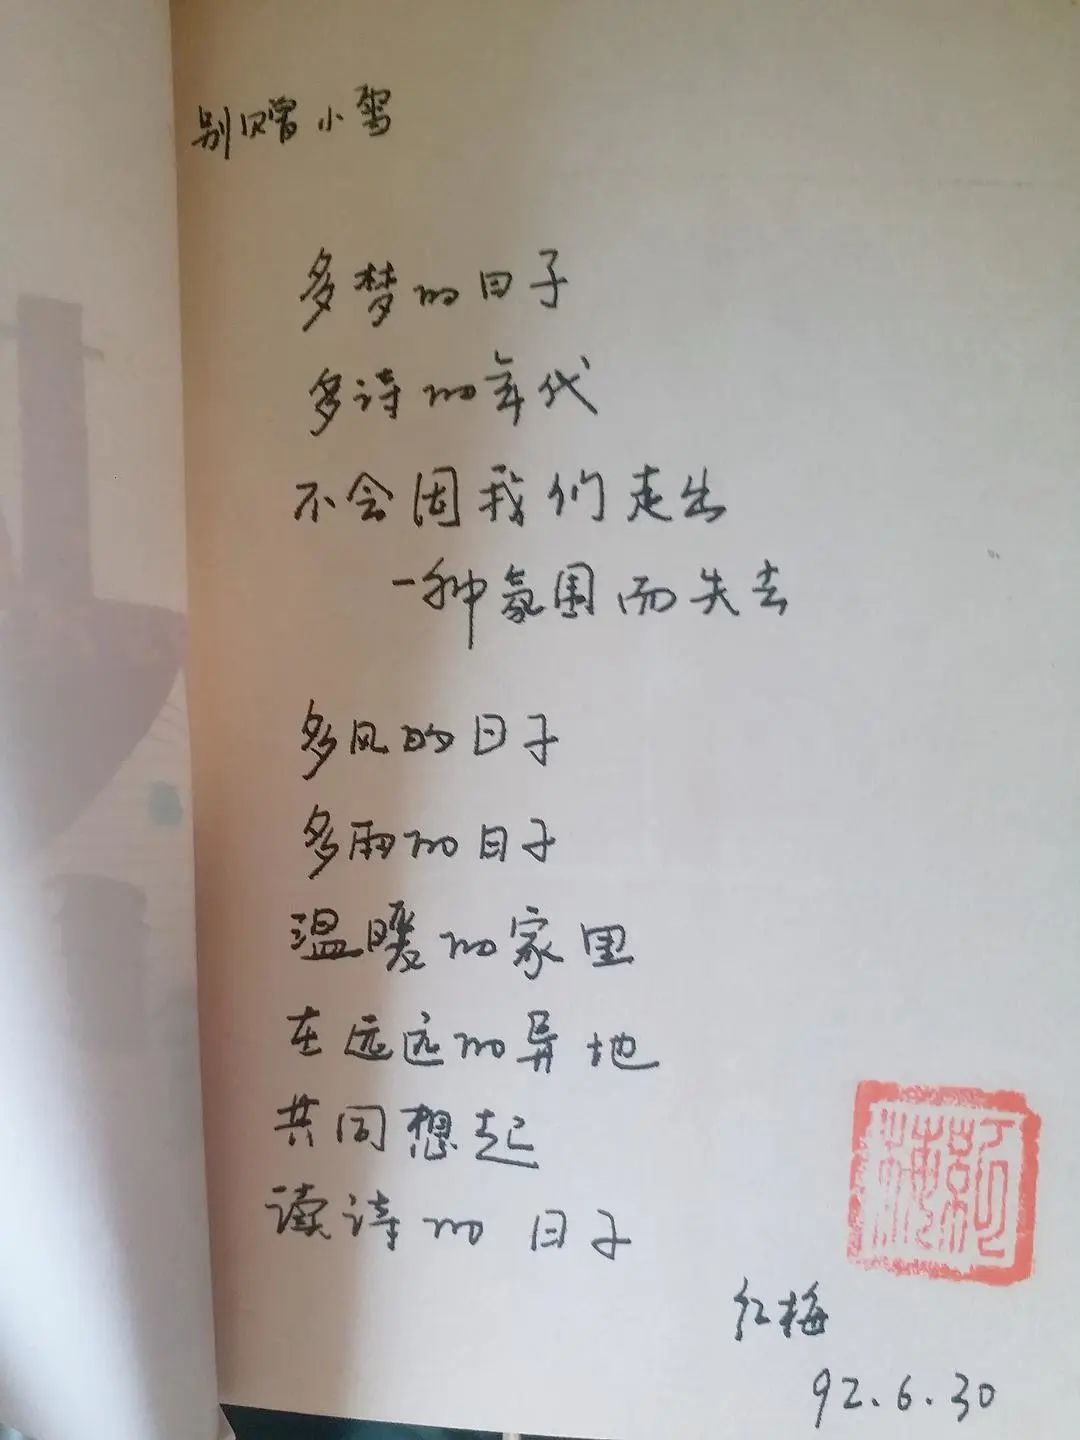 别赠小鸳
多梦的日子
多诗的年代
不会因我们走出
一种氛围而失去
多风的日子
多雨的日子
温暖的家里
在远远的异地
共同想起
读诗的日子
红梅
92.6.30